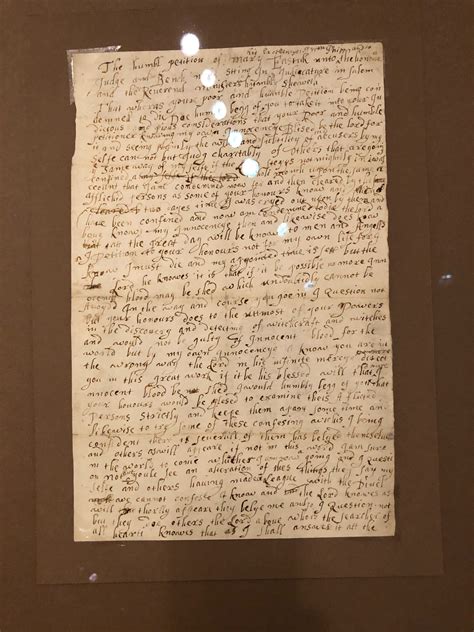 The humbl petition of Mary Eastick unto his Excellencyes
Judge and Bench now sitting In Judicature in Salem
and the Reverend ministers humbly sheweth
That wheras your poor and humble Petition being con
demned to die Doe humbly begg of you to take it into your Ju
dicious and pious considerations that your Poor and humble
petitioner knowing my own Innocencye Blised be the Lord for
it and seeing plainly the wiles and subtility of my accusers by my
selfe can not but Judg charitably of others that are going
the same way of my selfe if the Lord stepps not mightily in I was
confined a whole month upon the same ac
count that I am condemned now for and then cleared by the
afflicted persons as some of your honours know and in
two dayes time I was cryed out upon by
have been confined and now am condemned to die the Lord a
bove knows my Innocencye then and likewise does now
att the great day will be known to men and Angells
I petition to your honours not for my own life for I
know I must die and my appointed time is sett but the
Lord he knowes it is that if it be possible no more Inn
ocent blood may be shed which undoubtidly cannot be
Avoyd In the way and course you goe in I Question not
but your honours does to the uttmost of your Powers
in the discovery and detecting of witchcraft and witches
and would not be guilty of Innocent blood for the
world but by my own Innocencye I know you are in
the wrong way the Lord in his infinite mercye direct
you in this great work if it be his blessed will that no more
innocent blood be shed I would humbly begg of you that
your honours would be plesed to examine theis Aflicted
Persons strictly and keepe them apart some time and
Likewise to try some of these confesing wichis I being
confident there is severall of them has belyed themselves
and others as will appeare if not in this world I am sure
in the world to come whither I am now going and I Question
not but youle see an alteration of thes things they say my
selfe and others having made a League with the Divel
we cannot confesse I know and the Lord knowes as
will shortly appeare they belye me and so I Question not
but they doe others the Lord above who is the Searcher of
all hearts knowes that as I shall answer it att the